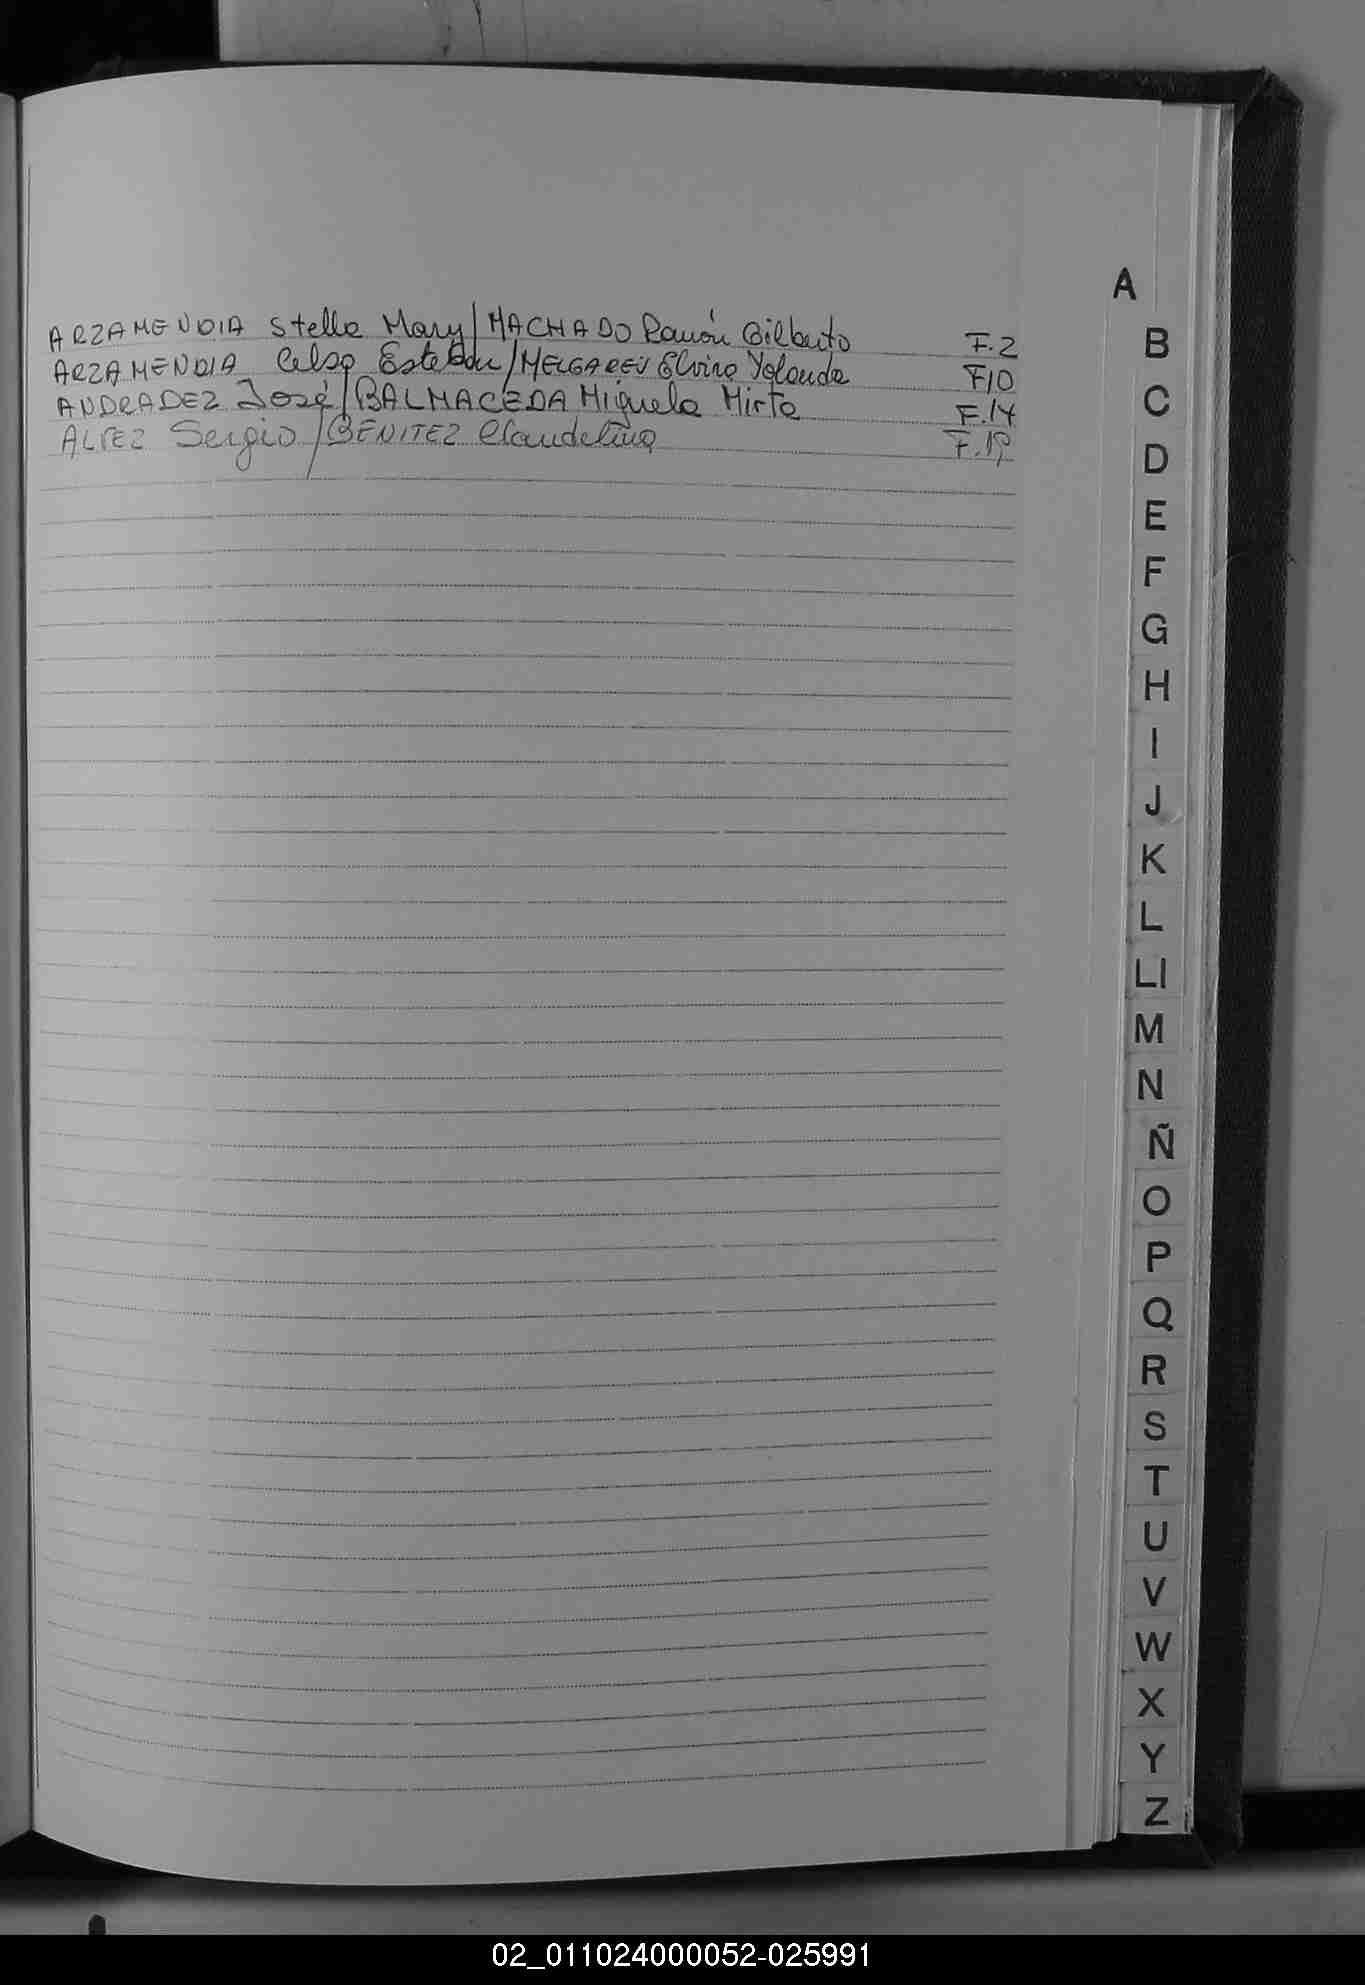 A
ARZAMENDIA Stella Mary/MACHADO Ramón Gilberto F.2
ARZAMENDIA Celso Esteban/MELGAREJ Elvira Yolanda F10
ANDRADEZ José/BALMACEDA Miguela Mirta F.14
Sergio/BENITEZ Claudelina
B
C
D
E
F
G
H
I
J
K
L
Ll
M
N
Ñ
O
P
Q
R
S
T
U
V
W
X
Y
Z
02_011024000052-025991